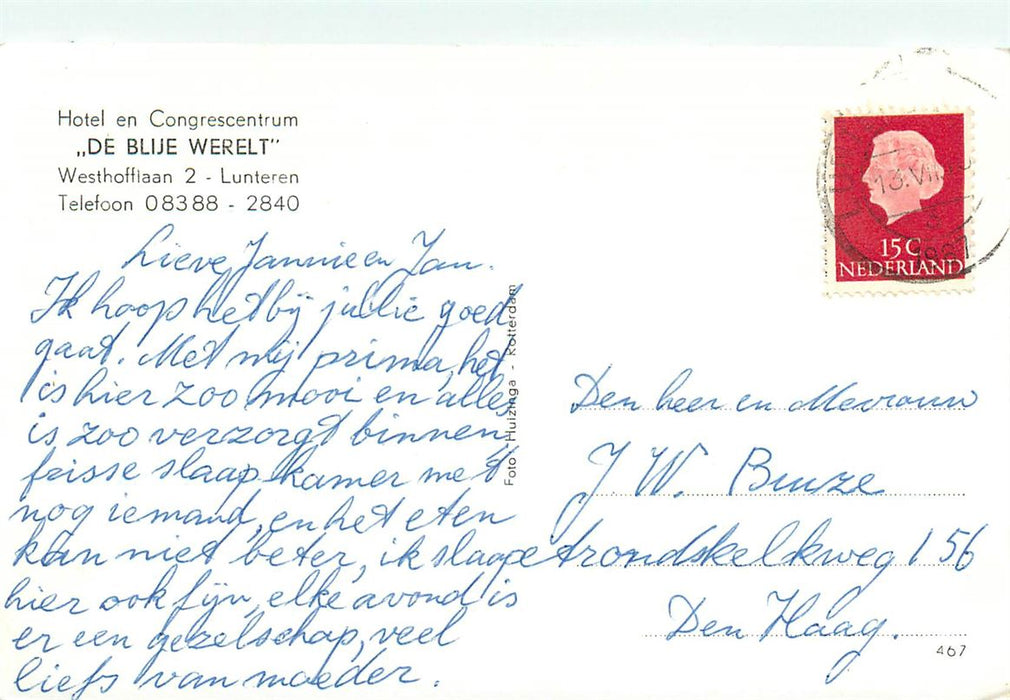 Hotel en Congrescentrum
„DE BLIJE WERELT”
Westhofflaan 2 - Lunteren
Telefoon 08388 - 2840
Lieve Jannie en Jan.
Ik hoop het bij jullie goed
gaat. Met mij prima, het
is hier zoo mooi en alles
is zoo verzorgt binnen,
frisse slaapkamer met
nog iemand, en het eten
kan niet beter, ik slaap
hier ook fijn, elke avond is
er een gezelschap, veel
liefs van moeder.
Foto: Huizinga - Rotterdam
13.VII
15 C
NEDERLAND
Den heer en Mevrouw
J. W.
156
Den Haag.
467